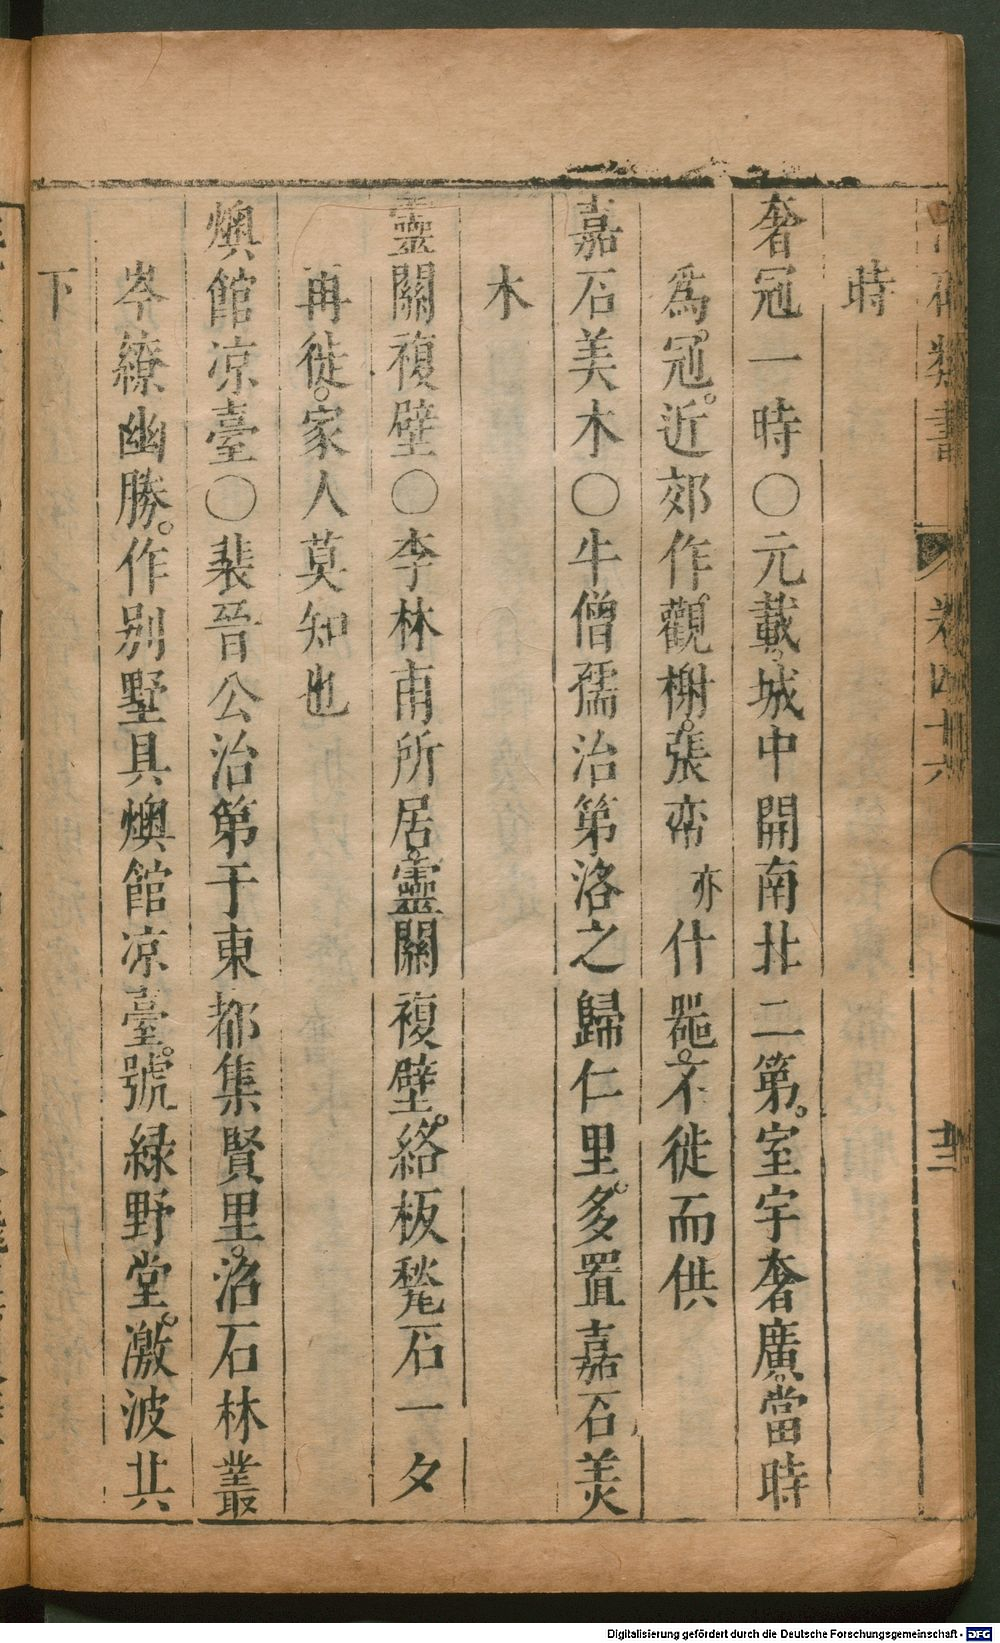 類書 卷四十六 廿三
時
奢冠一時〇元載城中開南北二第。室宇奢廣。當時
爲冠。近郊作觀榭。張帟 亦 什噐。不徙而供
嘉石美木〇牛僧孺治第洛之歸仁里。多置嘉石美
木
靈關複壁〇李林甫所居。靈關複壁。絡板甃石一夕
再徙。家人莫知也
燠館凉臺〇裴晉公治第于東都集賢里。沼石林叢
岑繚幽勝。作别墅具燠館凉臺。號緑野堂。激波其
下
Digitalisierung gefördert durch die Deutsche Forschungsgemeinschaft - DFG